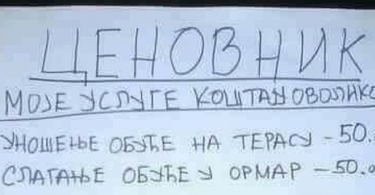 ЦЕНОВНИК
МОЈЕ УСЛУГЕ КОШТАЈУ ОВОЛИКО
УНОШЕЊЕ ОБУЋЕ НА ТЕРАСУ - 50.
СЛАГАЊЕ ОБУЋЕ У ОРМАР - 50.0